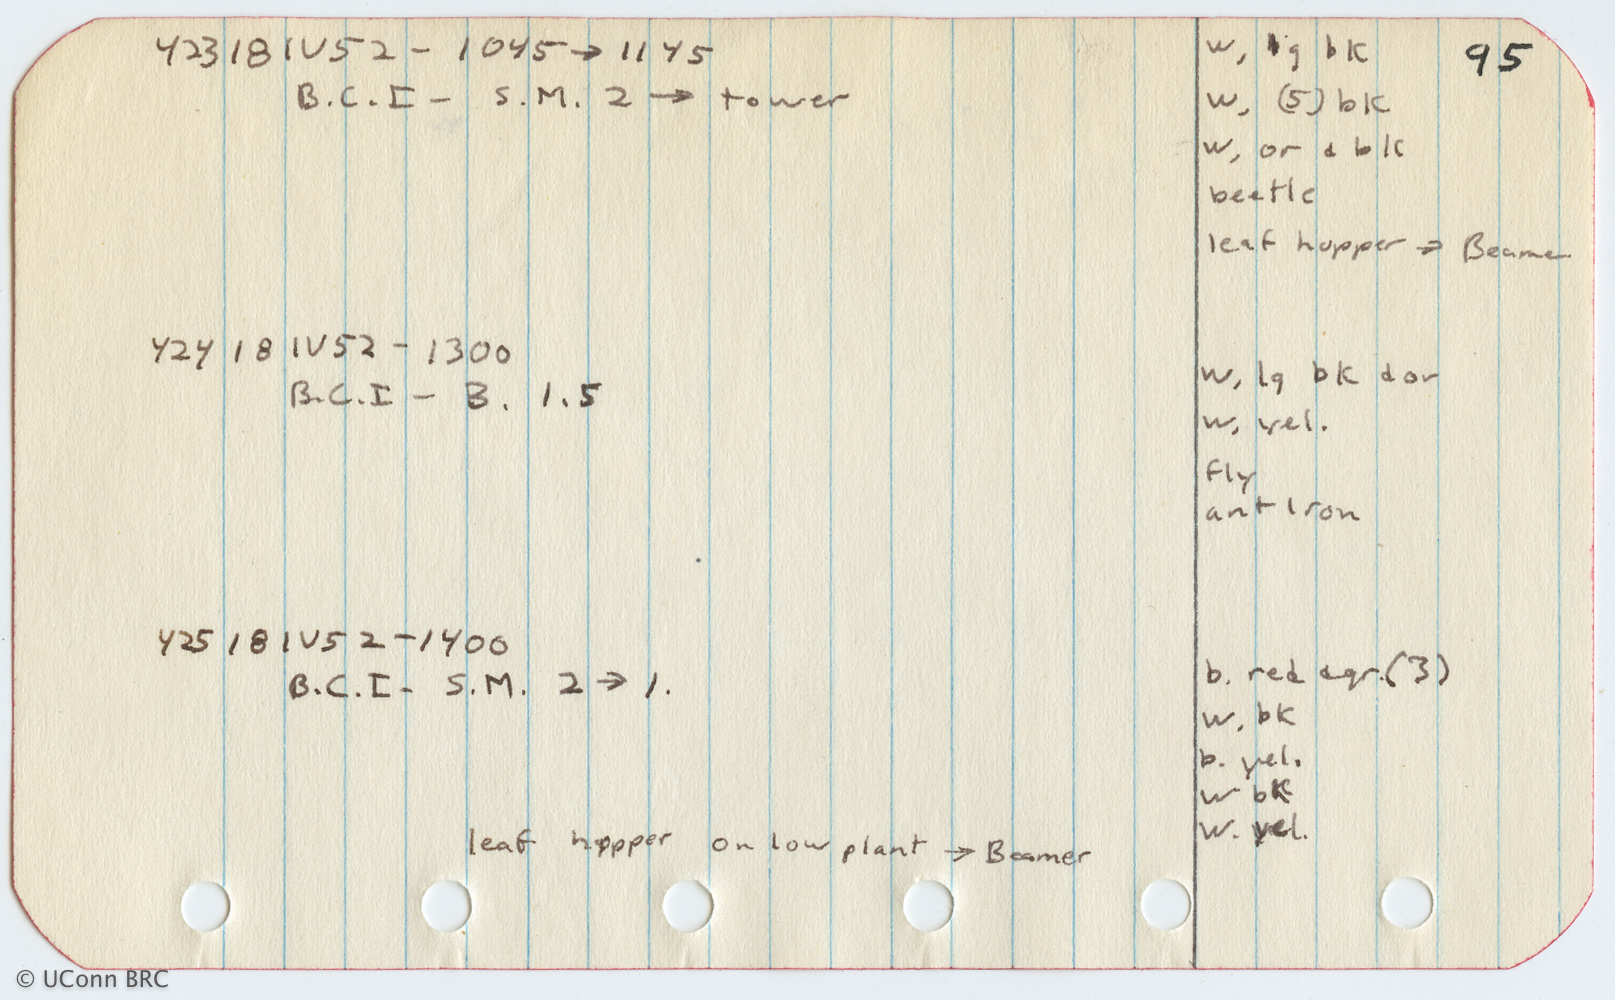 423 18 IV 52 - 1045 → 1145
B.C.I - S.M. 2 → tower
95
w, lg bk
w, (5) bk
w, or d blk
beetle
leaf hopper → Beamer
424 18 IV 52 - 1300
B.C.I - B. 1.5
w, lg bk dor
w, yel.
fly
ant Iron
425 18 IV 52 - 1400
B.C.I - S.M. 2 → 1.
b. red agr. (3)
w, bk
b. yel.
w bk
w. yel.
leaf hopper on low plant → Beamer
© UConn BRC